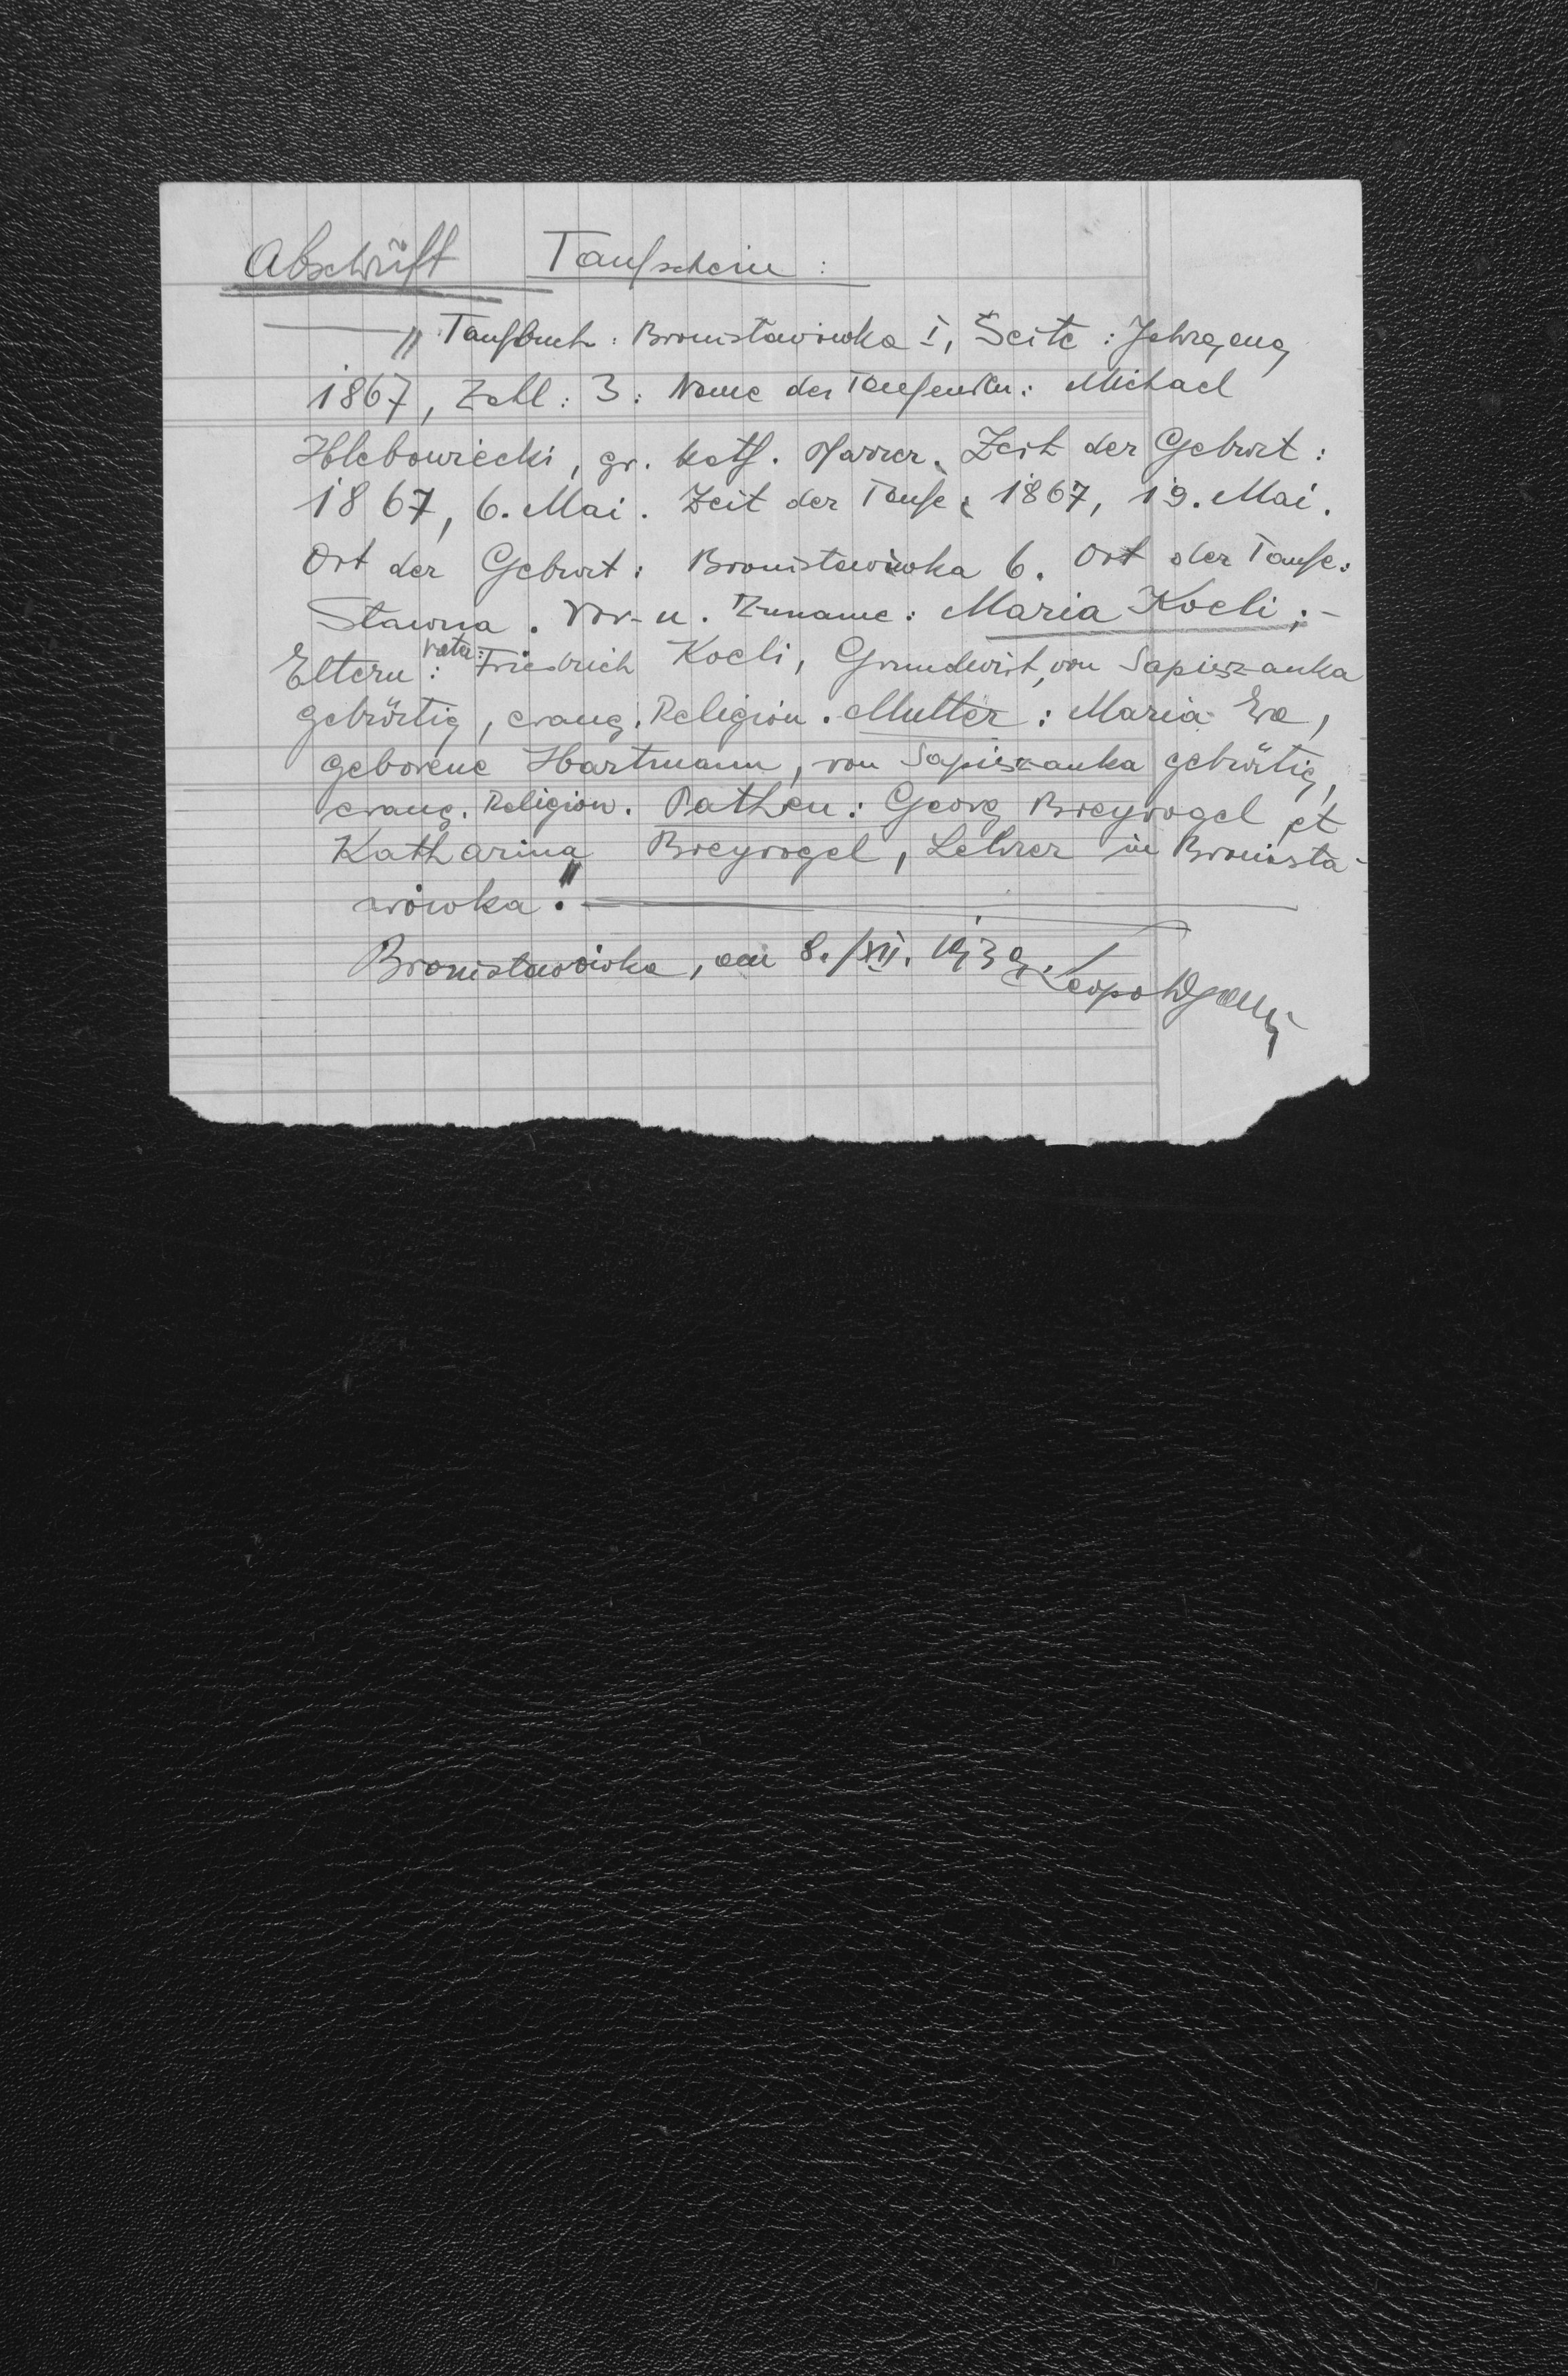 Abschrift Taufschein :
„ Taufbuch : Bronisławówka I, Seite : Jahrgang
1867, Zahl : 3 : Name des Taufenden : Michael
Hlebowiecki, gr. kath. Pfarrer. Zeit der Geburt :
1867, 6. Mai. Zeit der Taufe : 1867, 19. Mai.
Ort der Geburt : Bronisławówka 6. Ort der Taufe :
Sławna. Vor- u. Zuname : Maria Koeli ; -
Eltern : Vater : Friedrich Koeli, Grundwirt, von Sapieszanka
gebürtig, evang. Religion. Mutter : Maria Eva,
geborene Hartmann, von Sapieszanka gebürtig,
evang. Religion. Pathen : Georg Breyvogel et
Katharina Breyvogel, Lehrer in Bronisła-
wówka."
Bronisławówka, am 8./XII. 1939. Leopold